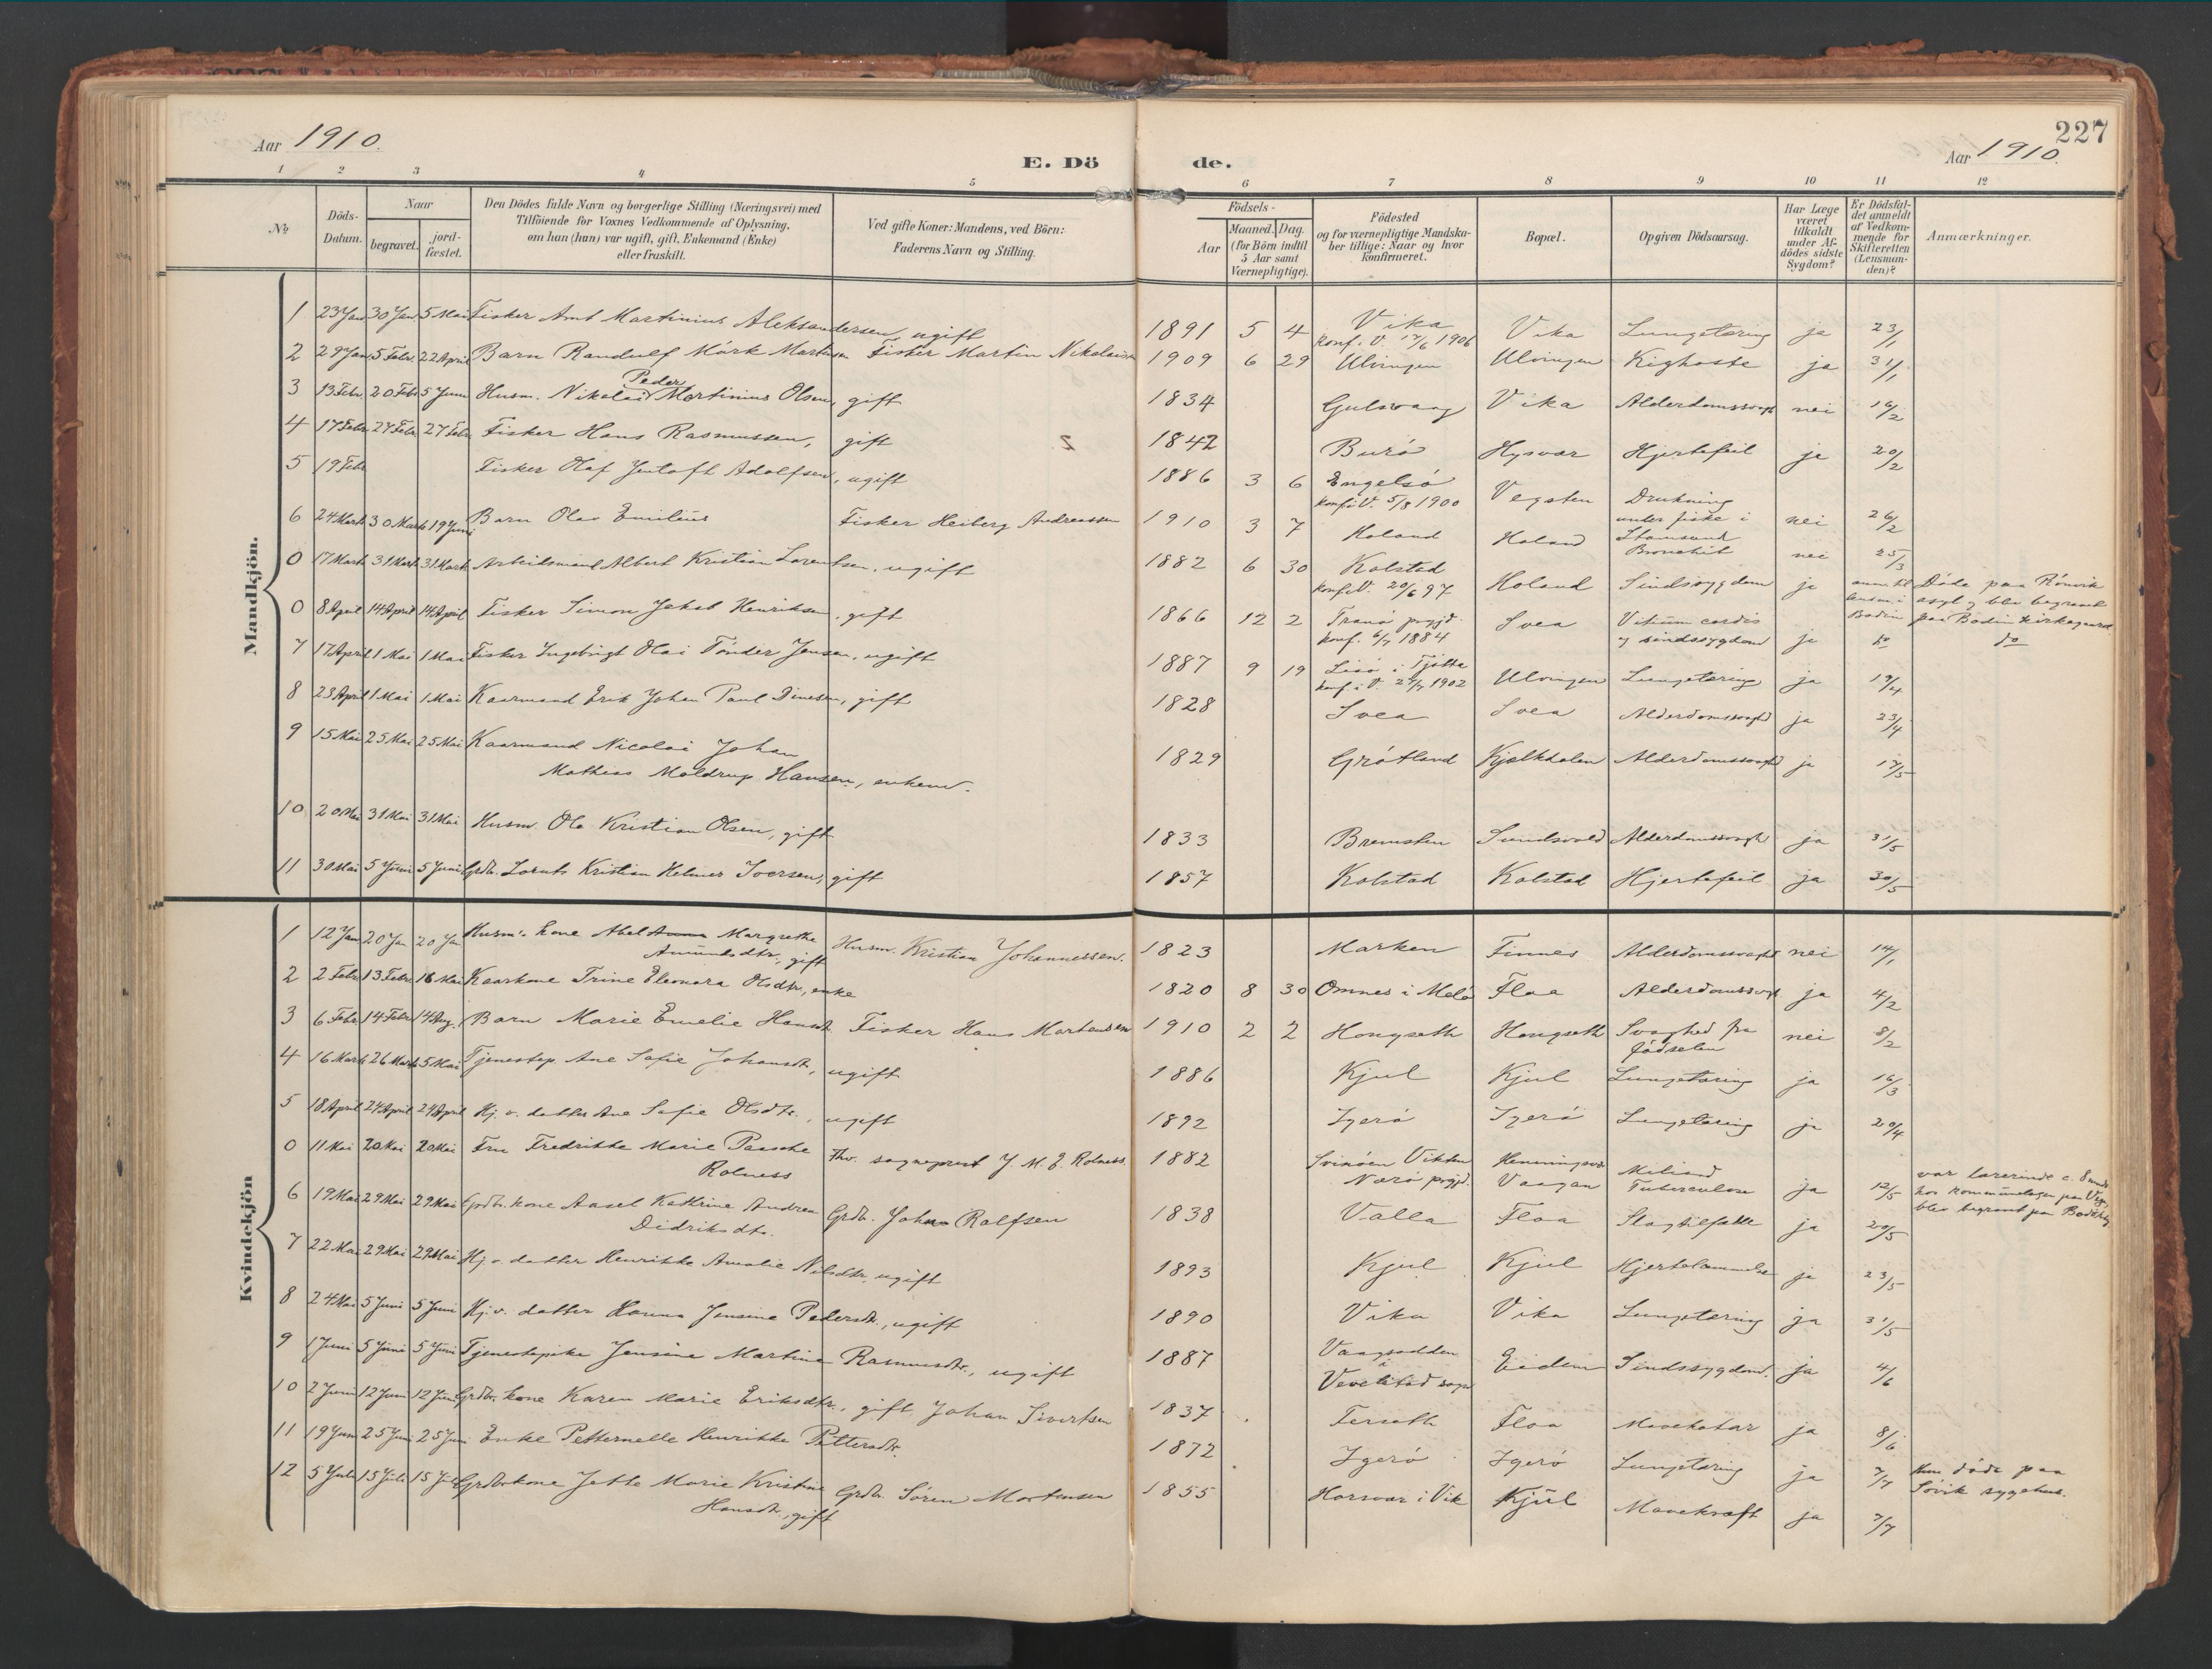 227
Aar 1910.
E. Dö de.
Aar 1910.
1 2 3 4 5 6 7 8 9 10 11 12
No
Döds-Datum.
Naar
begravet.
jord-fæstet.
Den Dödes fulde Navn og borgerlige Stilling (Næringsvei) med
Tilföiende for Voxnes Vedkommende af Oplysning,
om han (hun) var ugift, gift, Enkemand (Enke)
eller fraskilt.
Ved gifte Koner: Mandens, ved Börn:
Faderens Navn og Stilling.
Födsels-
Aar
Maaned. Dag.
(for Börn indtil
5 Aar samt
Værnepligtige).
Födested
og for værnepligtige Mandska-
ber tillige: Naar og hvor
konfirmeret.
Bopæl.
Opgiven Dödsaarsag.
Har Læge
været
tilkaldt
under Af-
dödes sidste
Sygdom?
Er Dödsfal-
det anmeldt
af Vedkom-
mende for
Skifteretten
(Lensman-
den)?
Anmærkninger.
Mandkjön.
1 23 Jan 30 Jan 5 Mai Fisker Arnt Martinius Aleksandersen, ugift 1891 5 4 Vika Vika Lungetæring ja 23/1
konf. i V. 17/6 1906
2 29 Jan 5 Febr. 22 April Barn Randulf Mörk Martinsen Fisker Martin Nikolaisen 1909 6 29 Ulvingen Ulvingen Kighoste ja 31/1
Peder
3 13 Febr. 20 Febr 5 Juni Husm. Nikolai Martinius Olsen, gift 1834 Gulsvaag Vika Alderdomssvagh nei 16/2
4 17 Febr 27 Febr 27 Febr. Fisker Hans Rasmussen, gift 1842 Burö Hysvær Hjertefeil ja 20/2
5 19 Febr Fisker Olaf Jentoft Adolfsen, ugift 1886 3 6 Engelsö Vegsten Drukning
konf. i V. 5/8 1900 under fiske i Stamsund nei 26/2
6 24 Marts 30 Marts 19 Juni Barn Olav Emilius Fisker Heiberg Andreassen 1910 3 7 Holand Holand Bronchit nei 25/3
0 17 Marts 31 Marts 31 Marts Arbeidsmand Albert Kristian Lorentsen, ugift 1882 6 30 Kolstad Holand Sindssygdom ja anm. til lensm. i Bodin Döde paa Rönvik
konf. i V. 20/6 97 asyl og blev begravet
paa Bodin kirkegaard
0 8 April 14 April 14 April Fisker Simon Jakob Henriksen, gift 1866 12 2 Tranö prgjd. Svea Vitium cordis
konf. 6/7 1884 og sindssygdom ja do do
7 17 April 1 Mai 1 Mai Fisker Ingebrigt Olai Tönder Jensen, ugift 1887 9 19 Lisö i Tjötta Ulvingen Lungetæring ja 19/4
konf. i V. 1902
8 23 April 1 Mai 1 Mai Kaarmand Erik Johan Paul Dinesen, gift 1828 Svea Svea Alderdomssvaghd ja 23/4
9 15 Mai 25 Mai 25 Mai Kaarmand Nicolai Johan
Mathias Moldrup Hansen, enkem. 1829 Grötland Kjælkdalen Alderdomssvaghd ja 17/5
10 20 Mai 31 Mai 31 Mai Husm. Ole Kristian Olsen, gift 1833 Bremsten Sundsvold Alderdomssvagh ja 31/5
11 30 Mai 5 Juni 5 Juni Grdbr. Lornts Kristian Helmer Iversen, gift 1857 Kolstad Kolstad Hjertefeil ja 30/5
Kvindekjön
1 12 Jan 20 Jan 20 Jan Husm's kone Abel Anna Margrethe
Amundsdtr, gift Husm. Kristian Johannessen. 1823 Marken Finnes Alderdomssvaghd nei 14/1
2 2 Febr 13 Febr 16 Mai Kaarkone Trine Eleonora Olsdtr, enke 1820 8 30 Omnes i Melö Floa Alderdomssvgh ja 4/2
3 6 Febr 14 Febr 14 Aug. Barn Marie Emelie Hansdtr Fisker Hans Martensen 1910 2 2 Hongseth Hongseth Svaghed fra
födselen nei 8/2
4 16 Marts 26 Marts 5 Mai Tjenestep. Ane Sofie Johansdtr, ugift 1886 Kjul Kjul Lungetæring ja 16/3
5 18 April 24 April 24 April Hj. v. datter Ane Sofie Olsdtr., ugift 1892 Igerö Igerö Lungetæring ja 20/4
0 11 Mai 20 Mai 20 Mai Fru Fredrikke Marie Paasche
Rolness Fhv. sogneprest J. M. E. Rolness. 1882 Svinöen Vikten Henningsvær Miliær
Nærö prgjd. Vaagan Tuberculose ja 12/5 var lærerinde c. 8 mnd
hos kommunelægen paa Vega,
blev begravet paa
6 19 Mai 29 Mai 29 Mai Grdbr. kone Aasel Kathrine Andrea
Didriksdtr. Grdbr. Johan Rolfsen 1838 Valla Floa Slagtilfælde ja 20/5
7 22 Mai 29 Mai 29 Mai Hj. v. datter Henrikke Amalie Nilsdtr, ugift 1893 Kjul Kjul Hjertelammelse ja 23/5
8 24 Mai 5 Juni 5 Juni Hj. v. datter Hanna Jensine Pedersdtr., ugift 1890 Vika Vika Lungetæring ja 31/5
9 1 Juni 5 Juni 5 Juni Tjenestepike Jensine Martine Rasmusdtr., ugift 1887 Vaagsodden
i
Vevelstad sogn Eidem Sindssygdom. ja 4/6
10 2 Juni 12 Juni 12 Juni Grdbr. kone Karen Marie Eriksdtr., gift Johan Sivertsen 1837 Forseth Floa Mavekatar ja 8/6
11 19 Juni 25 Juni 25 Juni Enke Petternelle Henrikke Pettersdtr. 1872 Igerö Igerö Lungetæring ja 7/7 Hun döde paa
Sövik sygehus.
12 5 Juli 15 Juli 15 Juli Grdbr kone Jette Marie Kristine
Hansdtr., gift Grdbr. Sören Mortensen 1855 Horsvær i Vik Kjul Mavekræft ja 7/7